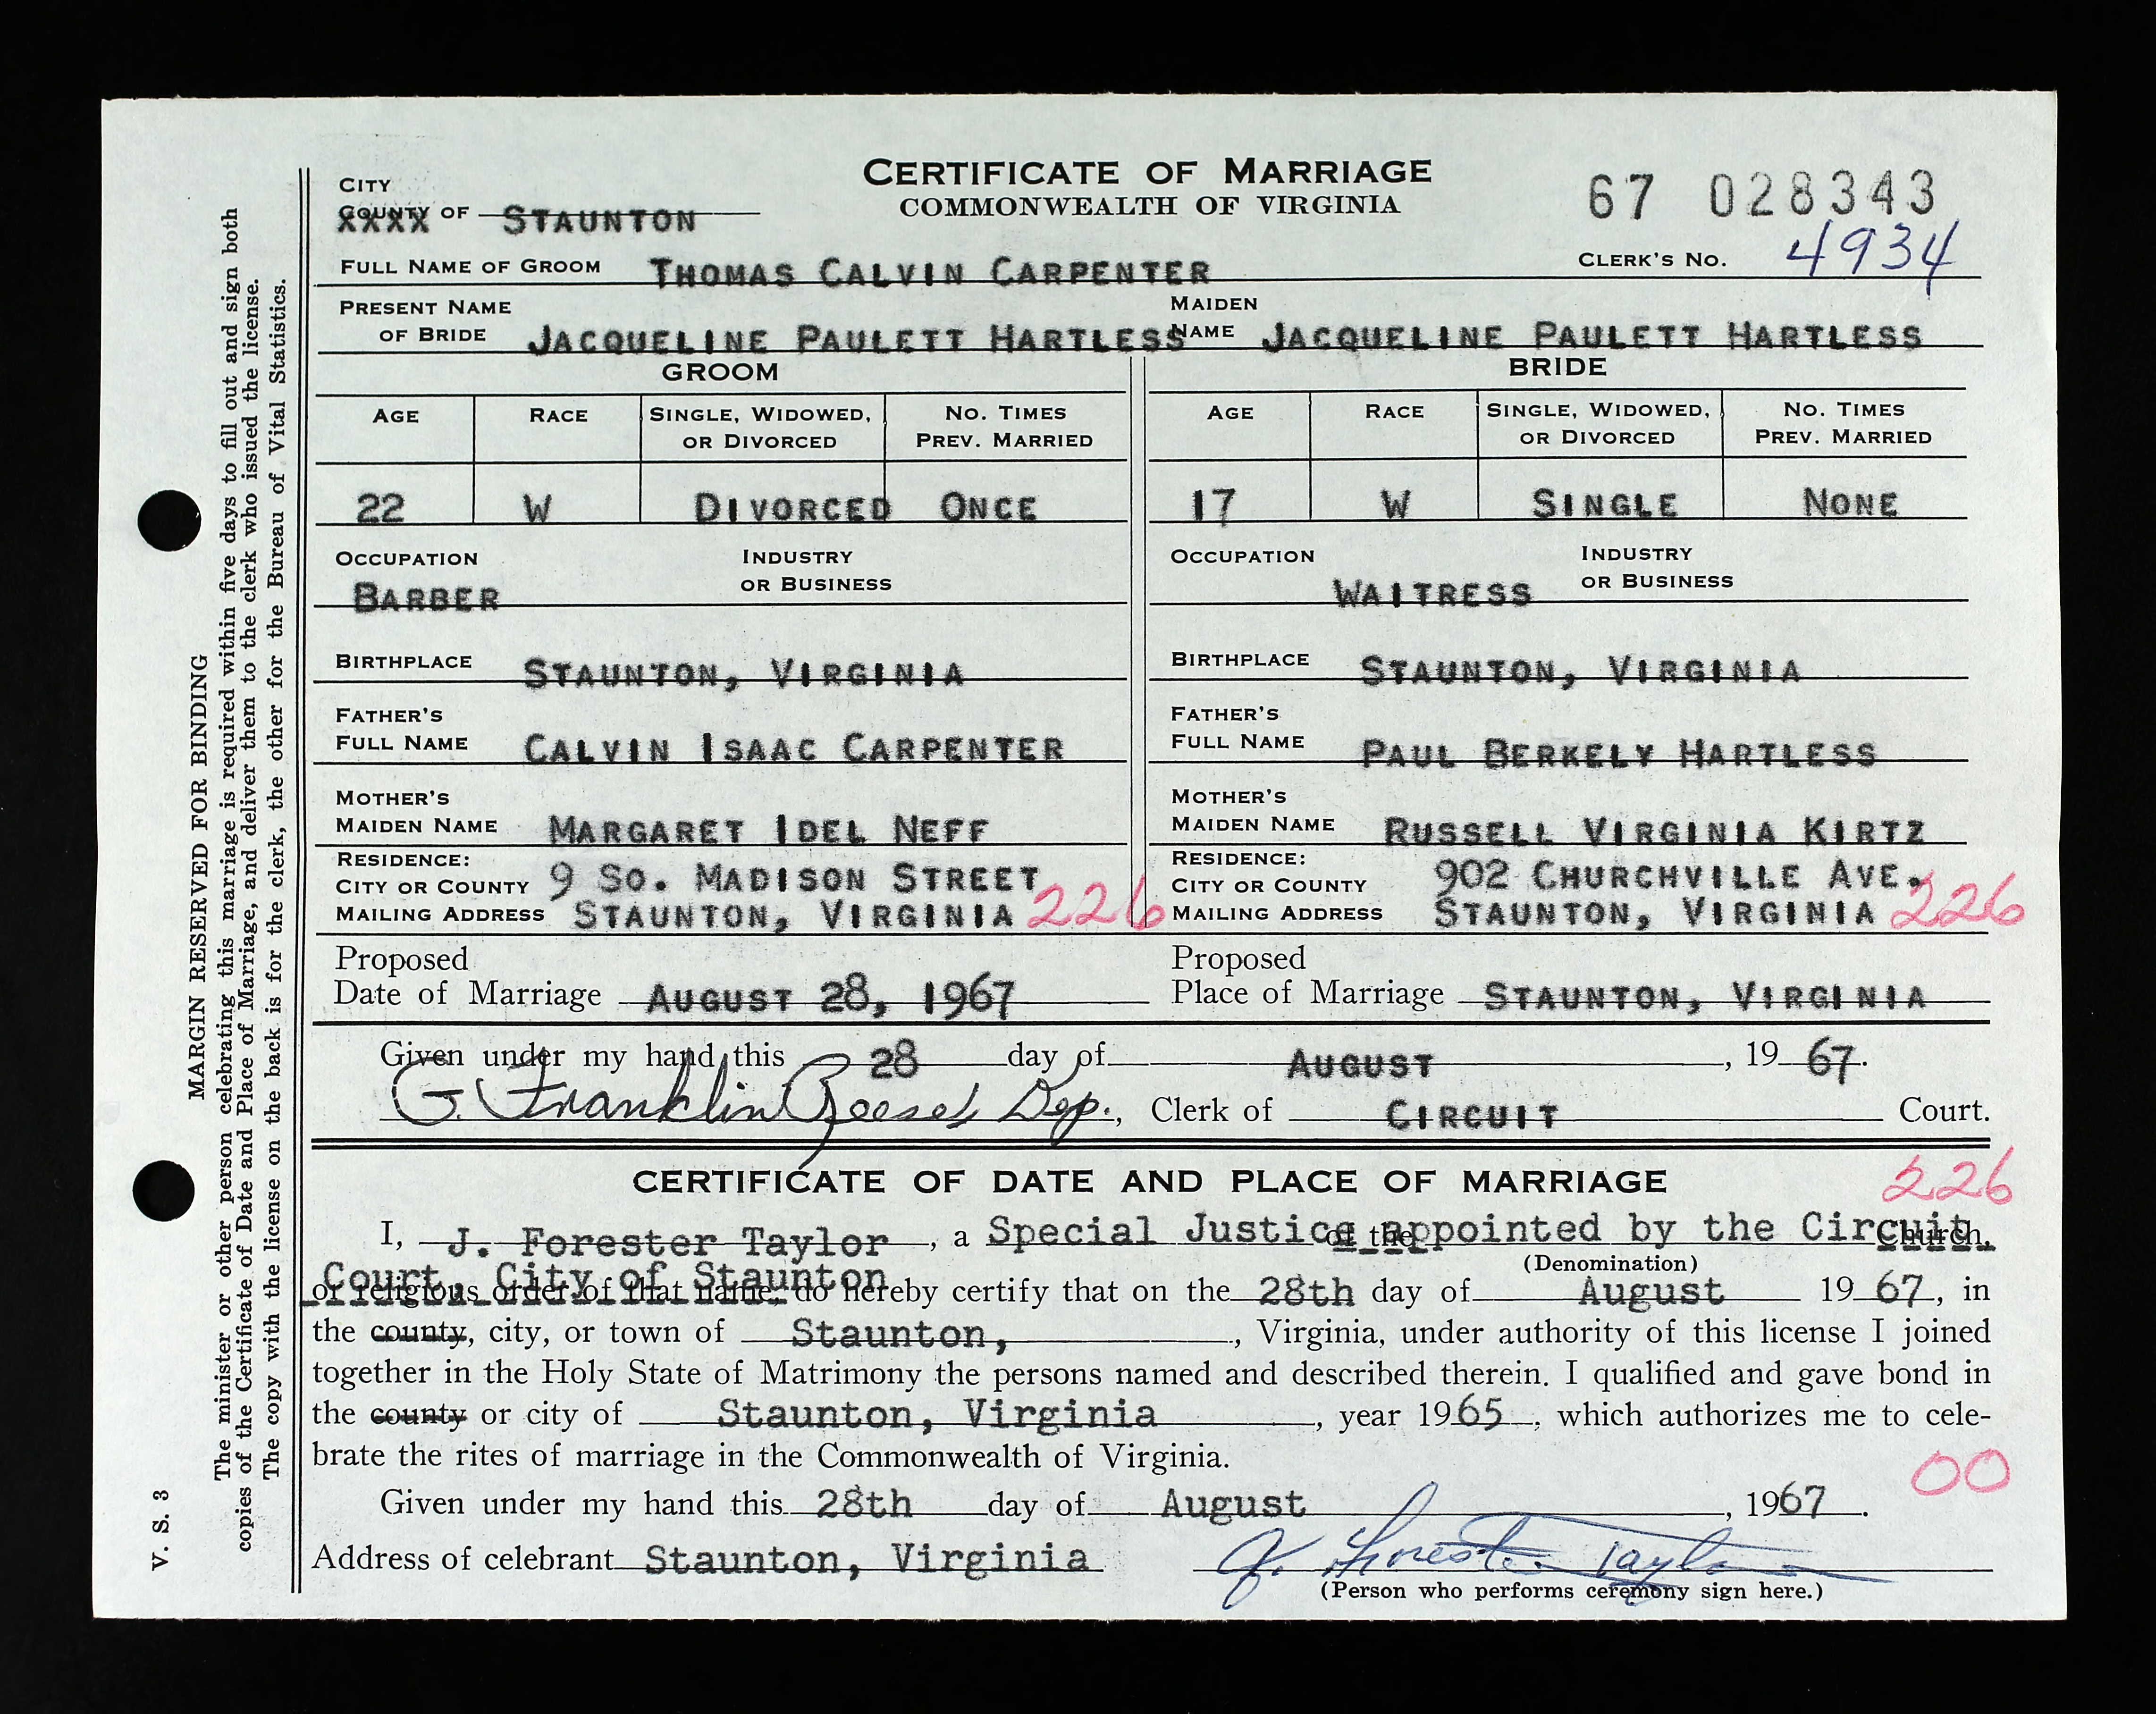 CERTIFICATE OF MARRIAGE
COMMONWEALTH OF VIRGINIA
67 028343
CITY
COUNTY OF STAUNTON
XXXX
CLERK'S NO. 4934
FULL NAME OF GROOM THOMAS CALVIN CARPENTER
PRESENT NAME OF BRIDE JACQUELINE PAULETT HARTLESS MAIDEN NAME JACQUELINE PAULETT HARTLESS
GROOM BRIDE
AGE RACE SINGLE, WIDOWED, OR DIVORCED NO. TIMES PREV. MARRIED AGE RACE SINGLE, WIDOWED, OR DIVORCED NO. TIMES PREV. MARRIED
22 W DIVORCED ONCE 17 W SINGLE NONE
OCCUPATION BARBER INDUSTRY OR BUSINESS OCCUPATION WAITRESS INDUSTRY OR BUSINESS
BIRTHPLACE STAUNTON, VIRGINIA BIRTHPLACE STAUNTON, VIRGINIA
FATHER'S FULL NAME CALVIN ISAAC CARPENTER FATHER'S FULL NAME PAUL BERKELY HARTLESS
MOTHER'S MAIDEN NAME MARGARET IDEL NEFF MOTHER'S MAIDEN NAME RUSSELL VIRGINIA KIRTZ
RESIDENCE: RESIDENCE:
CITY OR COUNTY 9 SO. MADISON STREET CITY OR COUNTY 902 CHURCHVILLE AVE.
MAILING ADDRESS STAUNTON, VIRGINIA 226 MAILING ADDRESS STAUNTON, VIRGINIA 226
Proposed Date of Marriage AUGUST 28, 1967 Proposed Place of Marriage STAUNTON, VIRGINIA
Given under my hand this 28 day of AUGUST, 19 67.
G. Franklin Reese Dep., Clerk of CIRCUIT Court.
CERTIFICATE OF DATE AND PLACE OF MARRIAGE
226
I, J. Forester Taylor, a Special Justice appointed by the Circuit of the Church,
(Denomination)
Court, City of Staunton or religious order of that name, do hereby certify that on the 28th day of August 19 67, in
the county, city, or town of Staunton,, Virginia, under authority of this license I joined
together in the Holy State of Matrimony the persons named and described therein. I qualified and gave bond in
the county or city of Staunton, Virginia, year 1965, which authorizes me to cele-
brate the rites of marriage in the Commonwealth of Virginia.
00
Given under my hand this 28th day of August, 1967.
Address of celebrant Staunton, Virginia J. Forester Taylor
(Person who performs ceremony sign here.)
MARGIN RESERVED FOR BINDING
The minister or other person celebrating this marriage is required within five days to fill out and sign both
copies of the Certificate of Date and Place of Marriage, and deliver them to the clerk who issued the license.
The copy with the license on the back is for the clerk, the other for the Bureau of Vital Statistics.
V. S. 3